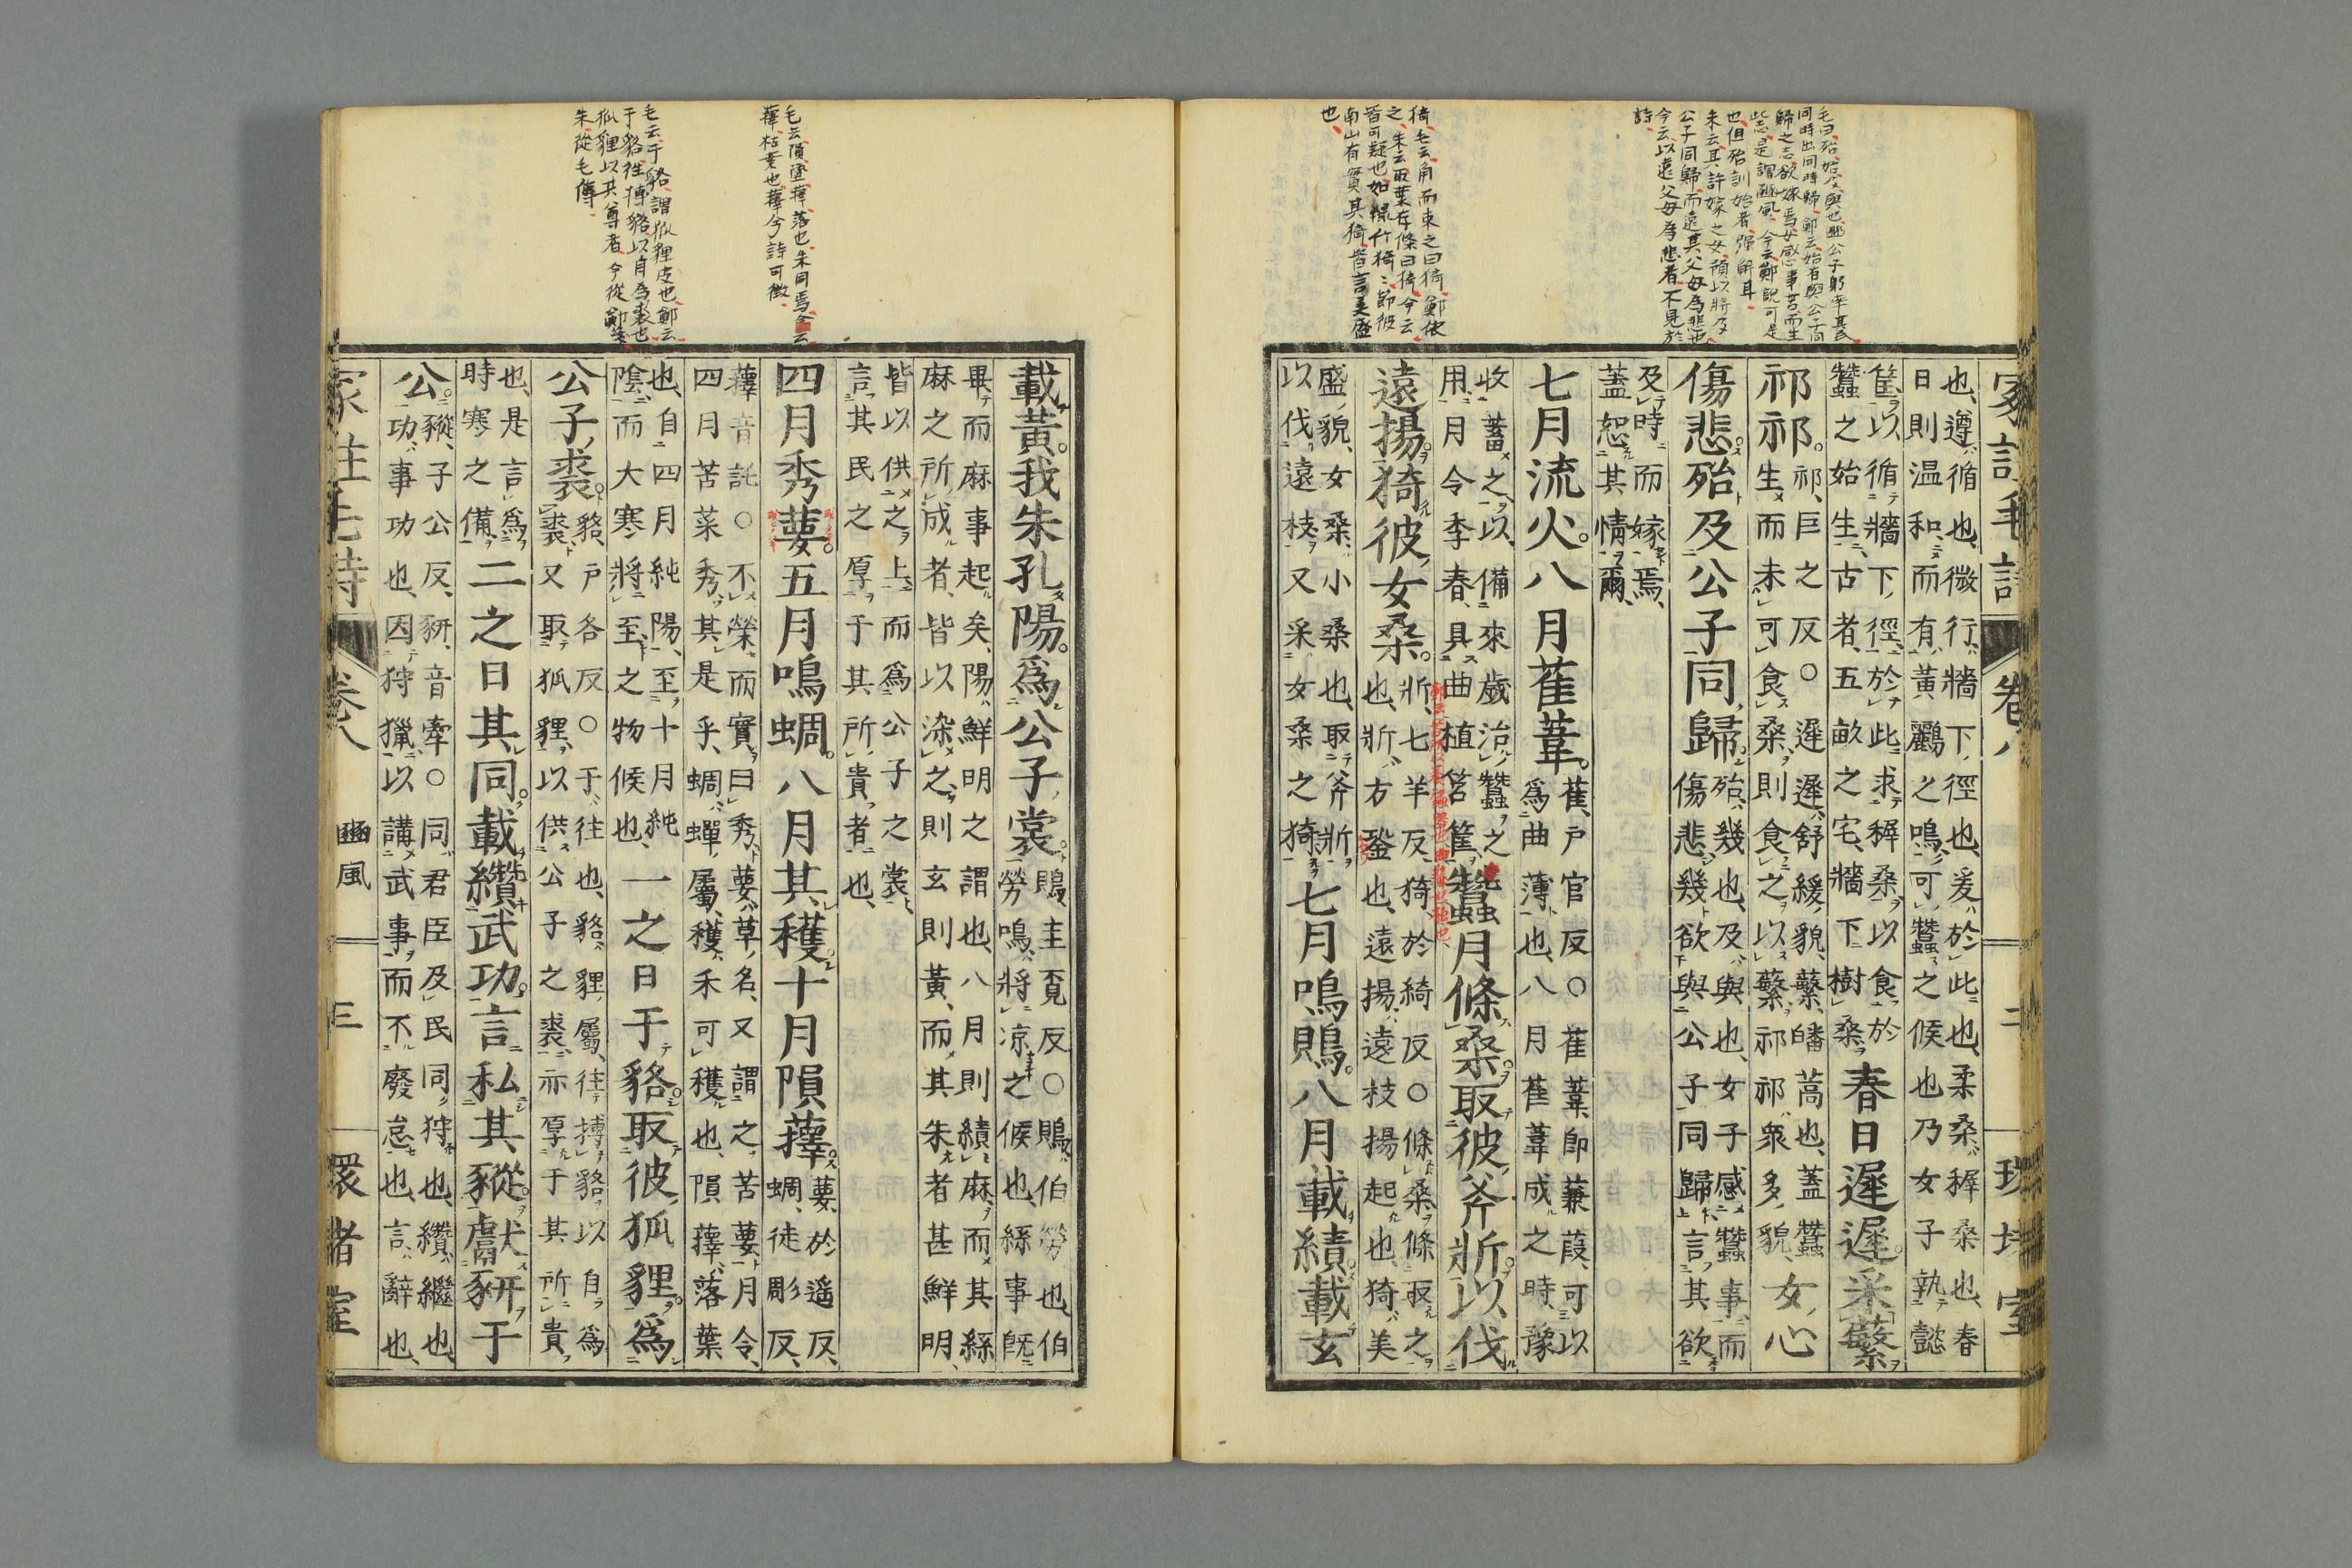 毛曰、殆、始、及、與也、豳公子躬率其民
同時出、同時歸、鄭云、始有與公子同
歸之志、欲嫁焉、女感事苦而生
此志、是謂豳風、今云、鄭説可是
也、但殆訓始者、強解耳、
朱云、其許嫁之女、預以將及
公子同歸、而遠其父母爲悲也、
今云、以遠父母爲悲者、不見於
詩、
猗、毛云、角而束之曰猗、鄭依
之、朱云、取葉存條曰猗、今云、
皆可疑也、如緑竹猗猗、節彼
南山有實其猗、皆言美盛
也、
冢註毛詩 卷八 二 環堵室
也、遵、循也、微行、牆下徑也、爰、於此也、柔桑、穉桑也、春
日則温和、而有黄鸝之鳴、可蠶之候也、乃女子執懿
筐、以循牆下徑、於此求穉桑、以食於
蠶之始生、古者五畝之宅、牆下樹桑、
春日遲遲。采蘩
祁祁。
祁、巨之反〇遲遲、舒緩貌、蘩、皤蒿也、蓋蠶
生而未可食桑、則食之以蘩、祁祁、衆多貌、
女心
傷悲。殆及公子同歸。
殆、幾也、及、與也、女子感蠶事而
傷悲、幾欲與公子同歸、言其欲
及時而嫁焉、
蓋恕其情爾、
七月流火。八月萑葦。
萑、戸官反〇萑葦、即蒹葭、可以
爲曲薄也、八月萑葦成之時、豫
收蓄之、以備來歲治蠶之
用、月令季春、具曲植筥筐、
蠶月條桑。取彼斧斨。以伐
遠揚。猗彼女桑。
斨、七羊反、猗、於綺反〇條桑、條取之
也、斨、方銎也、遠揚、遠枝揚起也、猗、美
盛貌、女桑、小桑也、取斧斨
以伐遠枝、又采女桑之猗、
七月鳴鵙。八月載績。載玄
毛云、隕、墜、蘀、落也、朱同焉、今云、
蘀、枯葉也、蘀兮詩可徴、
毛云、于貉、謂狐貍皮也、鄭云、
于貉、往搏貉以自爲裘也、
狐貍以共尊者、今從鄭箋、
朱從毛傳、
載黄。我朱孔陽。爲公子裳。
鵙、圭覓反〇鵙、伯勞也、伯
勞鳴、將凉之候也、絲事既
畢、而麻事起矣、陽、鮮明之謂也、八月則績麻、而其絲
麻之所成者、皆以染之、則玄則黄、而其朱者甚鮮明、
皆以供之上、而爲公子之裳、
言其民之厚于其所貴者也、
四月秀葽。五月鳴蜩。八月其穫。十月隕蘀。
葽、於遥反、蜩、徒彫反、
蘀音託〇不榮而實曰秀、葽、草名、又謂之苦葽、月令、
四月苦菜秀、其是乎、蜩、蟬屬、穫、禾可穫也、隕蘀、落葉
也、自四月純陽、至十月純
陰、而大寒將至之物候也、
一之日于貉。取彼狐貍。爲
公子裘。
貉、戸各反〇于、往也、貉、貍屬、往搏貉以自爲
裘、又取狐貍、以供公子之裘、亦厚于其所貴
也、是言爲
時寒之備、
二之日其同。載纘武功。言私其豵。獻豜于
公。
豵、子公反、豜、音牽〇同、君臣及民同狩也、纘、繼也、
功、事功也、因狩獵以講武事、而不廢怠也、言、辭也、
冢註毛詩 卷八 豳風 三 環堵室